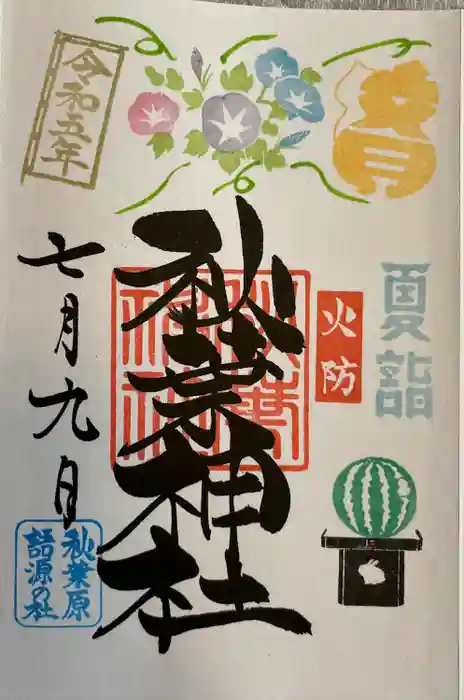 文月
夏詣
火防
秋葉神社
秋葉
神社
令和五年
七月九日
秋葉原
語源の社